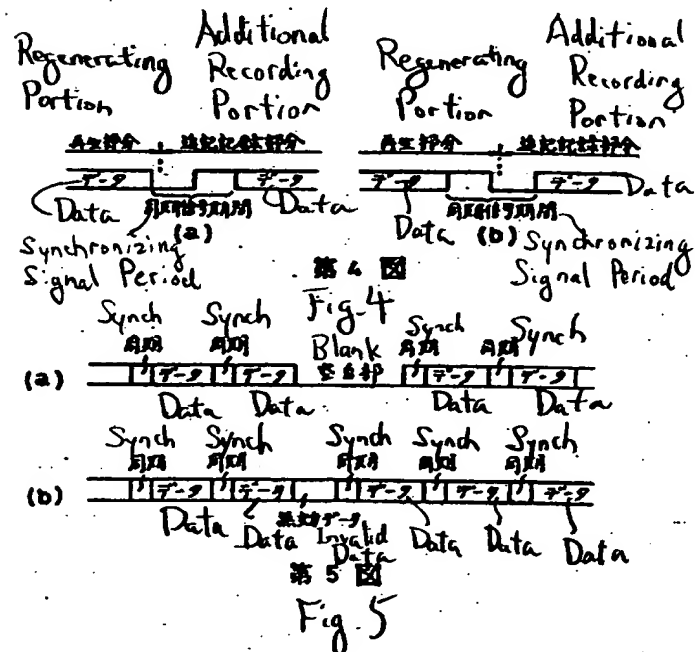 Regenerating Portion
Additional Recording Portion
Regenerating Portion
Additional Recording Portion
再生部分 追記記録部分 再生部分 追記記録部分
データ データ データ データ Data
Data 同期信号期間 Data Data 同期信号期間
(a) (b)
Synchronizing Signal Period
Synchronizing Signal Period
第4図
Fig. 4
Synch Synch Blank Synch Synch
同期 同期 空白部 同期 同期
(a) データ データ データ データ
Data Data Data Data
Synch Synch Synch Synch Synch
同期 同期 同期 同期 同期
(b) データ データ データ データ データ
Data Data Invalid Data Data Data Data
無効データ
第5図
Fig. 5